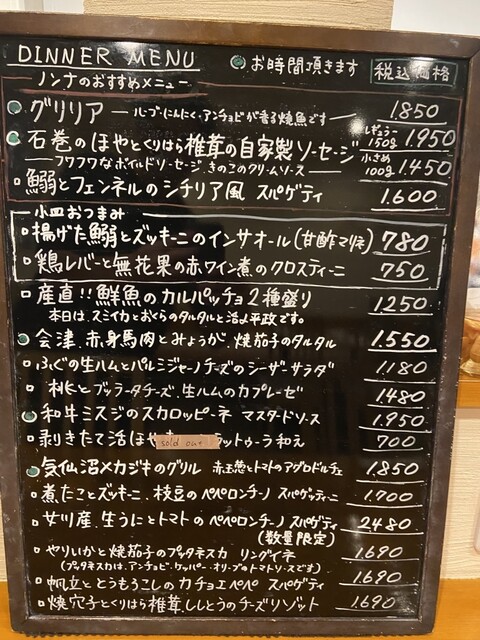 DINNER MENU
お時間頂きます
税込価格
ノンナのおすすめメニュー
グリリア ハーブ・にんにく、アンチョビが香る焼魚です 1.850
石巻のほやとくりはら椎茸の自家製ソーセージ レギュラー150g 1.950
フワフワなボイルドソーセージ、きのこのクリームソース 小さめ100g 1.450
鰯とフェンネルのシチリア風 スパゲティ 1.600
小皿おつまみ
揚げた鰯とズッキーニのインサオール(甘酢マリネ) 780
鶏レバーと無花果の赤ワイン煮のクロスティーニ 750
産直!!鮮魚のカルパッチョ2種盛り 1250
本日は、スミイカとおくらのタルタルと活〆平政です。
会津、赤身馬肉とみょうが、焼茄子のタルタル 1.550
ふぐの生ハムとパルミジャーノチーズのシーザーサラダ 1180
桃とブッラータチーズ、生ハムのカプレーゼ 1480
和牛ミスジのスカロッピーネ マスタードソース 1.950
剥きたて活ほや sold out ラットゥーラ和え 700
気仙沼メカジキのグリル 赤玉葱とトマトのアグロドルチェ 1.850
煮たことズッキーニ、枝豆のペペロンチーノ スパゲティーニ 1.700
女川産、生うにとトマトのペペロンチーノ スパゲティ 2480
(数量限定)
やりいかと焼茄子のプッタネスカ リングイネ 1.690
(プッタネスカは、アンチョビ、ケッパー、オリーブのトマトソースです)
帆立ととうもろこしのカチョエペペ スパゲティ 1.690
焼穴子とくりはら椎茸、ししとうのチーズリゾット 1.690